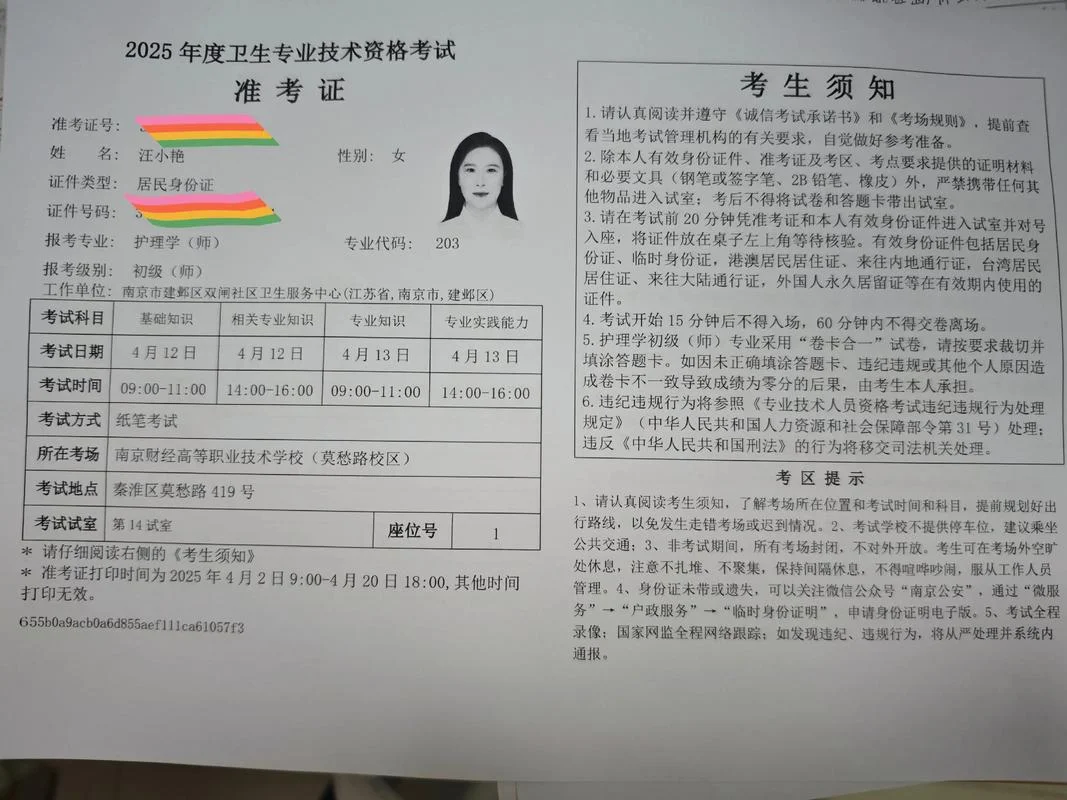 2025 年度卫生专业技术资格考试
准 考 证
准考证号：
姓 名： 汪小艳 性别： 女
证件类型： 居民身份证
证件号码：
报考专业： 护理学（师） 专业代码： 203
报考级别： 初级（师）
工作单位： 南京市建邺区双闸社区卫生服务中心(江苏省,南京市,建邺区)
考试科目 基础知识 相关专业知识 专业知识 专业实践能力
考试日期 4 月 12 日 4 月 12 日 4 月 13 日 4 月 13 日
考试时间 09:00-11:00 14:00-16:00 09:00-11:00 14:00-16:00
考试方式 纸笔考试
所在考场 南京财经高等职业技术学校（莫愁路校区）
考试地点 秦淮区莫愁路 419 号
考试试室 第 14 试室 座位号 1
* 请仔细阅读右侧的《考生须知》
* 准考证打印时间为 2025 年 4 月 2 日 9:00-4 月 20 日 18:00, 其他时间
打印无效。
655b0a9acb0a6d855aef111ca61057f3
考 生 须 知
1. 请认真阅读并遵守《诚信考试承诺书》和《考场规则》，提前查
看当地考试管理机构的有关要求，自觉做好参考准备。
2. 除本人有效身份证件、准考证及考区、考点要求提供的证明材料
和必要文具（钢笔或签字笔、2B 铅笔、橡皮）外，严禁携带任何其
他物品进入试室；考后不得将试卷和答题卡带出试室。
3. 请在考试前 20 分钟凭准考证和本人有效身份证件进入试室并对号
入座，将证件放在桌子左上角等待核验。有效身份证件包括居民身
份证、临时身份证，港澳居民居住证、来往内地通行证，台湾居民
居住证、来往大陆通行证，外国人永久居留证等在有效期内使用的
证件。
4. 考试开始 15 分钟后不得入场，60 分钟内不得交卷离场。
5. 护理学初级（师）专业采用“卷卡合一”试卷，请按要求裁切并
填涂答题卡。如因未正确填涂答题卡、违纪违规或其他个人原因造
成卷卡不一致导致成绩为零分的后果，由考生本人承担。
6. 违纪违规行为将参照《专业技术人员资格考试违纪违规行为处理
规定》（中华人民共和国人力资源和社会保障部令第 31 号）处理；
违反《中华人民共和国刑法》的行为将移交司法机关处理。
考 区 提 示
1、请认真阅读考生须知，了解考场所在位置和考试时间和科目，提前规划好出
行路线，以免发生走错考场或迟到情况。2、考试学校不提供停车位，建议乘坐
公共交通；3、非考试期间，所有考场封闭，不对外开放。考生可在考场外空旷
处休息，注意不扎堆、不聚集，保持间隔休息，不得喧哗吵闹，服从工作人员
管理。4、身份证未带或遗失，可以关注微信公众号“南京公安”，通过“微服
务”→“户政服务”→“临时身份证明”，申请身份证明电子版。5、考试全程
录像；国家网监全程网络跟踪；如发现违纪、违规行为，将从严处理并系统内
通报。